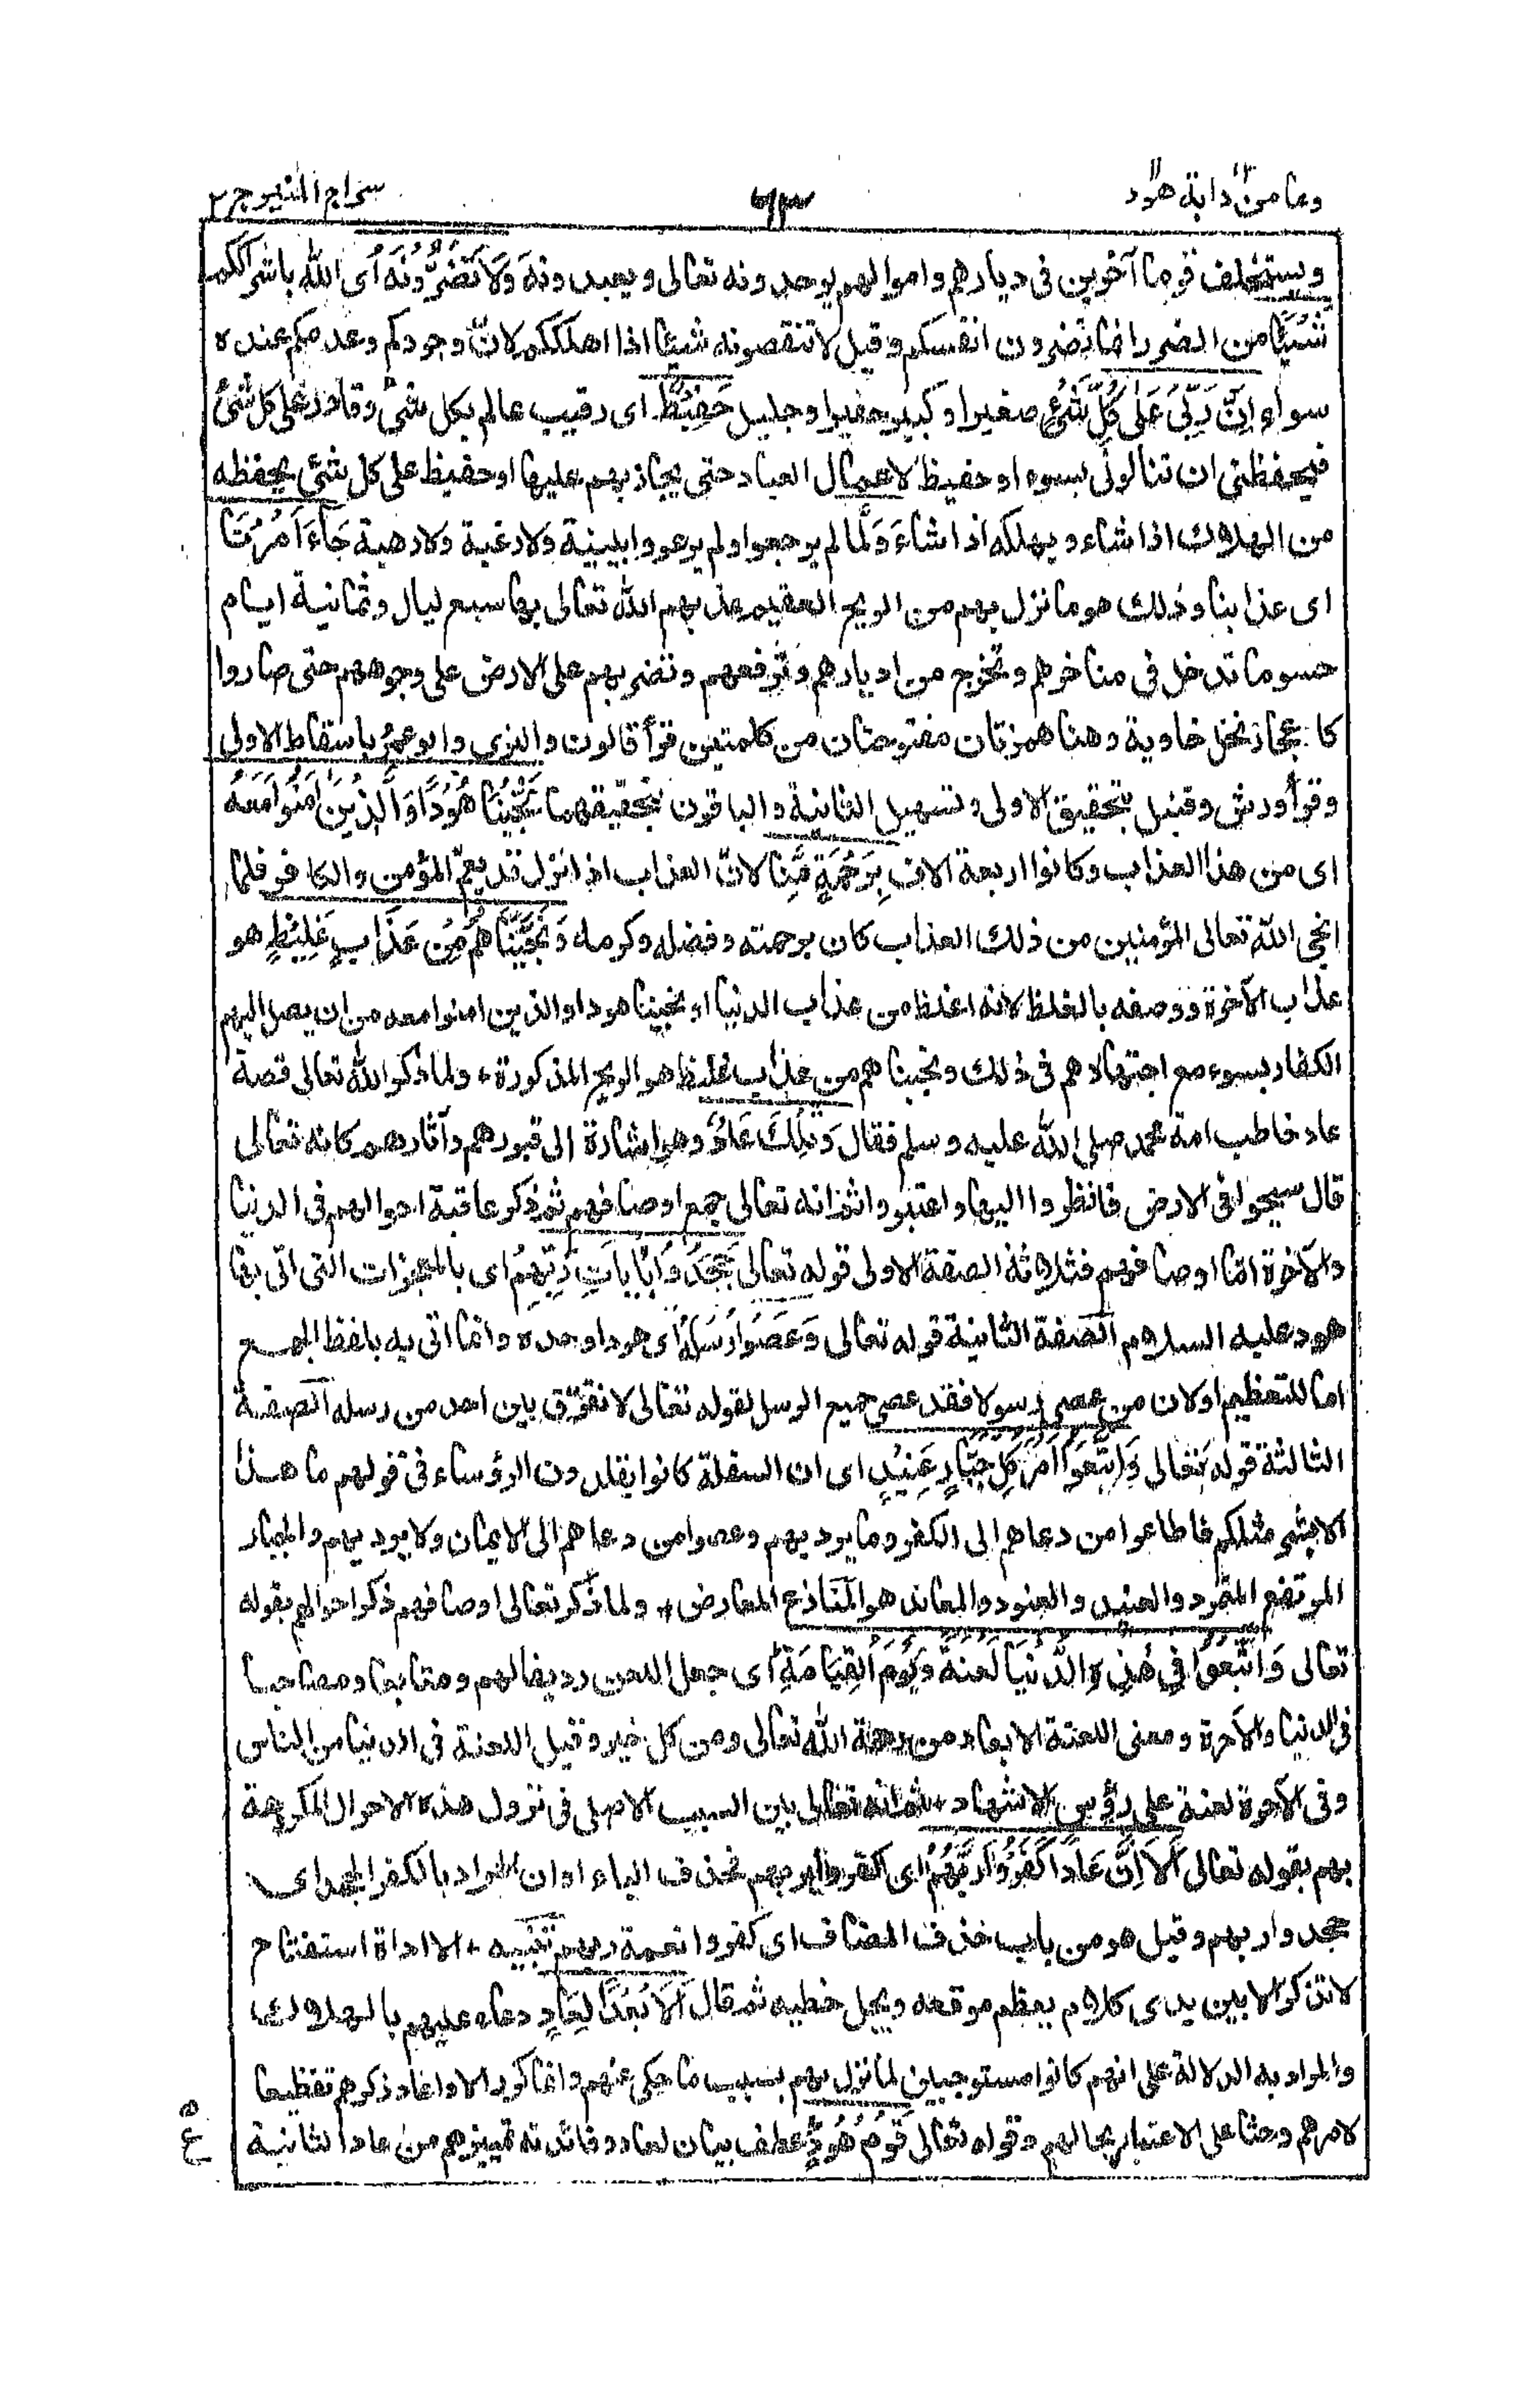 وما من دابة هود
سراج المنير ج ٢
ويستخلف قوما آخرين فى ديارهم واموالهم يوحدونه تعالى ويعبدونه وَلَا تَضُرُّونَهُ اى الله باشراككم
شَيْئًا من الضرر انما تضرون انفسكم وقيل لا تنقصونه شيئا اذا اهلككم لانّ وجودكم وعدمكم عنده
سواء اِنَّ رَبِّىْ عَلٰى كُلِّ شَىْءٍ صغير او كبير حقير او جليل حَفِيْظٌ اى رقيب عالم بكل شئ وقادر على كل شئ
فيحفظنى ان تنالونى بسوء او حفيظ لاعمال العباد حتى يجازيهم عليها او حفيظ على كل شئ يحفظه
من الهلاك اذا شاء ويهلكه اذا شاء وَلَمَّا لم يرجعوا ولم يرعووا ببينة ولا رغبة ولا رهبة جَآءَ اَمْرُنَا
اى عذابنا وذلك هو ما نزل بهم من الريح العقيم عذبهم الله تعالى بها سبع ليال وثمانية ايام
حسوما تدخل فى مناخرهم وتخرج من ادبارهم وترفعهم وتضربهم على الارض على وجوههم حتى صاروا
كاعجاز نخل خاوية وهنا همزتان مفتوحتان من كلمتين قرأ قالون والبزى وابو عمرو باسقاط الاولى
وقرأ ورش وقنبل بتحقيق الاولى وتسهيل الثانية والباقون بتحقيقهما نَجَّيْنَا هُوْدًا وَّالَّذِيْنَ اٰمَنُوْا مَعَهٗ
اى من هذا العذاب وكانوا اربعة الاف بِرَحْمَةٍ مِّنَّا لانّ العذاب اذا نزل قد يعمّ المؤمن والكافر فلما
انجى الله تعالى المؤمنين من ذلك العذاب كان برحمته وفضله وكرمه وَنَجَّيْنَاهُمْ مِّنْ عَذَابٍ غَلِيْظٍ هو
عذاب الآخرة ووصفه بالغلظ لانه اغلظ من عذاب الدنيا او نجينا هودا والذين امنوا معه من ان يصل اليهم
الكفار بسوء مع اجتهادهم فى ذلك ونجيناهم من عذاب غليظ هو الريح المذكورة ٭ ولما ذكر الله تعالى قصة
عاد خاطب امة محمد صلى الله عليه وسلم فقال وَتِلْكَ عَادٌ وهو اشارة الى قبورهم وآثارهم كانه تعالى
قال سيحوا فى الارض فانظروا اليها واعتبروا ثم انه تعالى جمع اوصافهم ثم ذكر عاقبة احوالهم فى الدنيا
والآخرة امّا اوصافهم فثلاثة الصفة الاولى قوله تعالى جَحَدُوْا بِاٰيَاتِ رَبِّهِمْ اى بالمعجزات التى اتى بها
هود عليه السلام الصفة الثانية قوله تعالى وَعَصَوْا رُسُلَهٗ اى هودا وحده وانما اتى به بلفظ الجمع
اما للتعظيم او لان من عصى رسولا فقد عصى جميع الرسل لقوله تعالى لا نفرّق بين احد من رسله الصفة
الثالثة قوله تعالى وَاتَّبَعُوْا اَمْرَ كُلِّ جَبَّارٍ عَنِيْدٍ اى ان السفلة كانوا يقلدون الرؤساء فى قولهم ما هذا
الا بشر مثلكم فاطاعوا من دعاهم الى الكفر وما يرديهم وعصوا من دعاهم الى الايمان ولا يرديهم والجبار
المرتفع المتمرد والعنيد والعنود والمعاند هو المنازع المعارض ٭ ولما ذكر تعالى اوصافهم ذكر احوالهم بقوله
تعالى وَاُتْبِعُوْا فِىْ هٰذِهِ الدُّنْيَا لَعْنَةً وَّيَوْمَ الْقِيَامَةِ اى جعل اللعن رديفا لهم ومتابعا ومصاحبا
فى الدنيا والآخرة ومعنى اللعنة الابعاد من رحمة الله تعالى ومن كل خير وقيل اللعنة فى الدنيا من الناس
وفى الآخرة لعنة على رؤس الاشهاد ٭ ثم انه تعالى بين السبب الاصلى فى نزول هذه الاحوال المكروهة
بهم بقوله تعالى اَلَا اِنَّ عَادًا كَفَرُوْا رَبَّهُمْ اى كفروا بربهم فحذف الباء او ان المراد بالكفر الجحد اى
جحدوا ربهم وقيل هو من باب حذف المضاف اى كفروا نعمة ربهم تنبيه ٭ الا اداة استفتاح
لا تذكر الا بين يدى كلام يعظم موقعه ويجل خطبه ثم قال اَلَا بُعْدًا لِّعَادٍ دعاء عليهم بالهلاك
والمراد به الدلالة على انهم كانوا مستوجبين لما نزل بهم بسبب ما حكى عنهم وانما كرر الا واعاد ذكرهم تفظيعا
لامرهم وحثا على الاعتبار بحالهم وقوله تعالى قَوْمِ هُوْدٍ عطف بيان لعاد وفائدته تمييزهم من عاد الثانية
ع